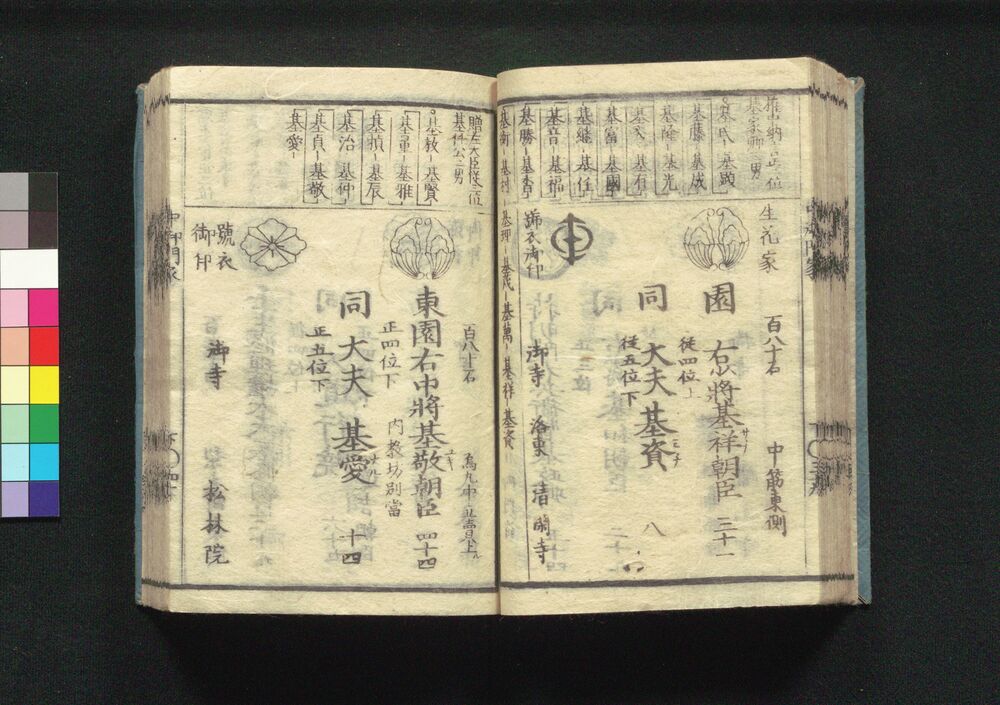 基氏ー基顕
基藤ー基成
基隆ー基光
基有
基富ー基國
基継ー基任
基音ー基福
基勝ー基香
基衡ー基村ー基理ー基茂ー基萬ー基祥ー基資
生花家
百八十石
中筋東側
園
右少將基祥朝臣
三十一
從四位上
同
大夫基資
八
從五位下
號衣御印
御寺
洛東
清閑寺
贈左大臣從一位
基任公二男
基教ー基賢
基量ー基雅
基楨ー基辰
基治
基仲ー
基貞ー基敬
基愛ー
百八十石
東園右中將基敬朝臣
四十四
正四位下
内教坊別當
同
大夫
基愛
十四
正五位下
號衣
御印
御寺
松林院